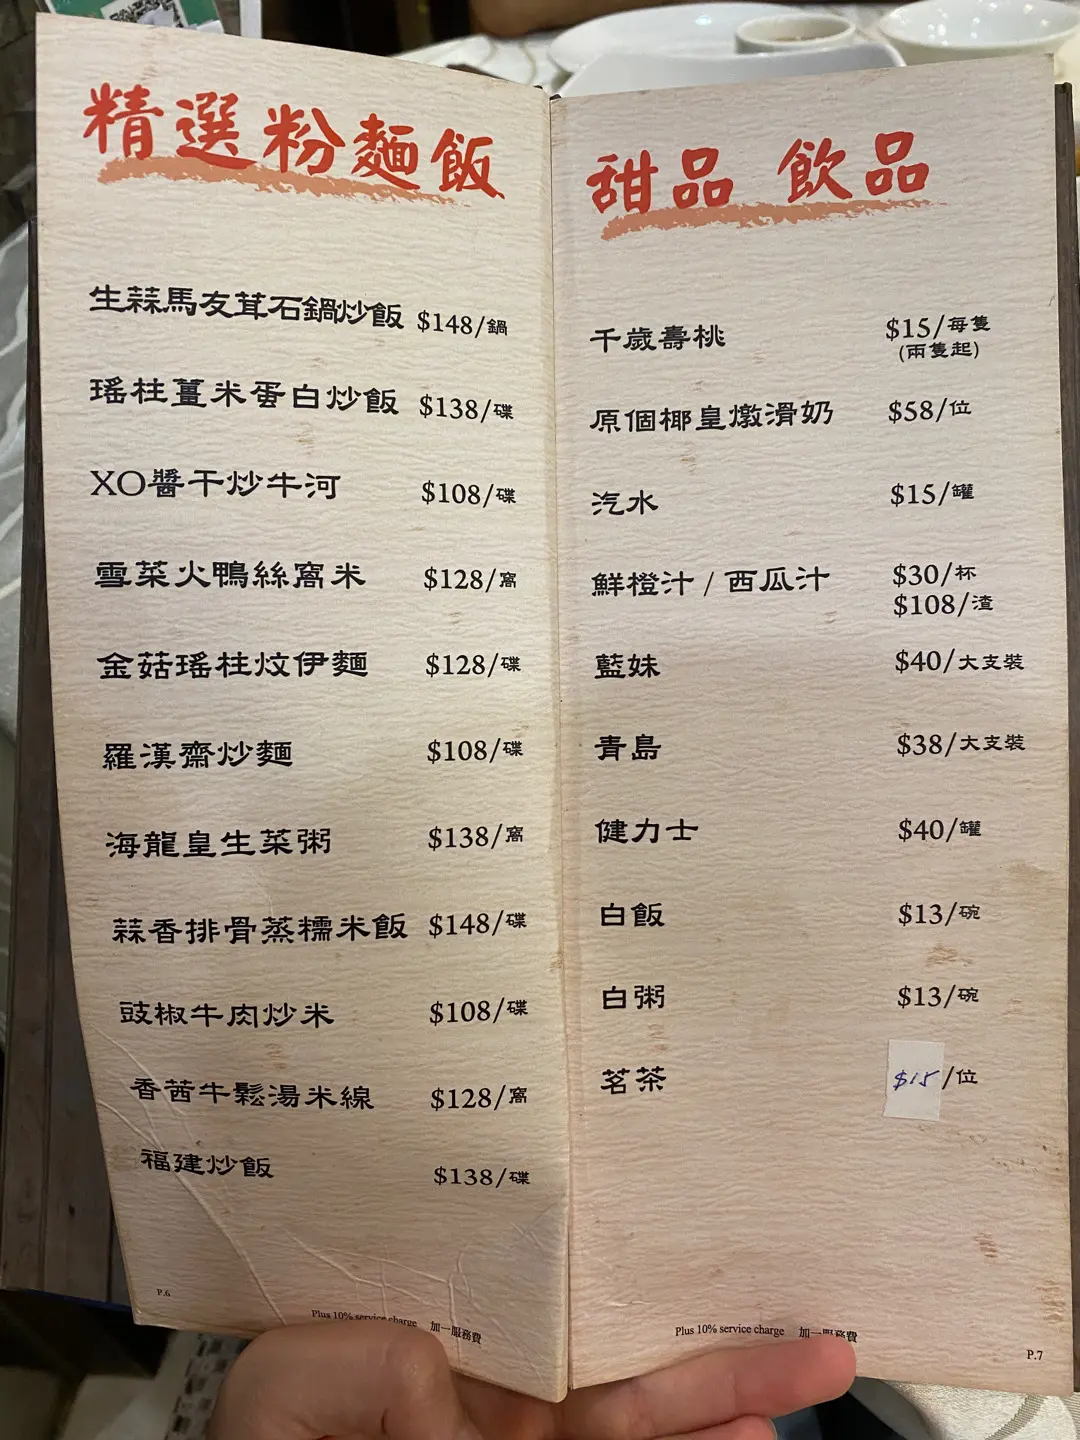 精選粉麵飯
生蒜馬友茸石鍋炒飯 $148/鍋
瑤柱薑米蛋白炒飯 $138/碟
XO醬干炒牛河 $108/碟
雪菜火鴨絲窩米 $128/窩
金菇瑤柱炆伊麵 $128/碟
羅漢齋炒麵 $108/碟
海龍皇生菜粥 $138/窩
蒜香排骨蒸糯米飯 $148/碟
豉椒牛肉炒米 $108/碟
香茜牛鬆湯米線 $128/窩
福建炒飯 $138/碟
P.6
Plus 10% service charge 加一服務費
甜品 飲品
千歲壽桃 $15/每隻
(兩隻起)
原個椰皇燉滑奶 $58/位
汽水 $15/罐
鮮橙汁 / 西瓜汁 $30/杯
$108/渣
藍妹 $40/大支裝
青島 $38/大支裝
健力士 $40/罐
白飯 $13/碗
白粥 $13/碗
茗茶 $15/位
Plus 10% service charge 加一服務費
P.7